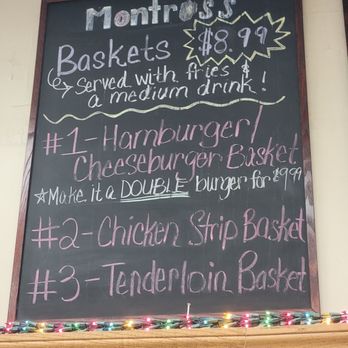 Montross
Baskets $8.99
Served with fries &
a medium drink!
#1-Hamburger/
Cheeseburger Basket
☆Make it a DOUBLE burger for $9.99
#2-Chicken Strip Basket
#3-Tenderloin Basket